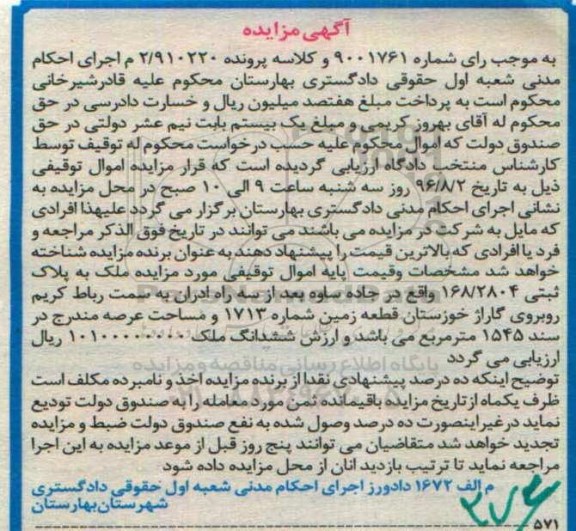 آگهی مزایده
به موجب رای شماره ۹۰۰۱۷۶۱ و کلاسه پرونده ۲/۹۱۰۲۲۰ م اجرای احکام
مدنی شعبه اول حقوقی دادگستری بهارستان محکوم علیه قادرشیرخانی
محکوم است به پرداخت مبلغ هفتصد میلیون ریال و خسارت دادرسی در حق
محکوم له آقای بهروز کریمی و مبلغ یک بیستم بابت نیم عشر دولتی در حق
صندوق دولت که اموال محکوم علیه حسب درخواست محکوم له توقیف توسط
کارشناس منتخب دادگاه ارزیابی گردیده است که قرار مزایده اموال توقیفی
ذیل به تاریخ ۹۶/۸/۲ روز سه شنبه ساعت ۹ الی ۱۰ صبح در محل مزایده به
نشانی اجرای احکام مدنی دادگستری بهارستان برگزار می گردد علیهذا افرادی
که مایل به شرکت در مزایده می باشند می توانند در تاریخ فوق الذکر مراجعه و
فرد یا افرادی که بالاترین قیمت را پیشنهاد دهند به عنوان برنده مزایده شناخته
خواهد شد مشخصات وقیمت پایه اموال توقیفی مورد مزایده ملک به پلاک
ثبتی ۱۶۸/۲۸۰۴ واقع در جاده ساوه بعد از سه راه آدران به سمت رباط کریم
روبروی گاراژ خوزستان قطعه زمین شماره ۱۷۱۳ و مساحت عرصه مندرج در
سند ۱۵۴۵ مترمربع می باشد و ارزش ششدانگ ملک ریال
ارزیابی می گردد
پایگاه اطلاع رسانی مناقصه و مزایده
توضیح اینکه ده درصد پیشنهادی نقدا از برنده مزایده اخذ و نامبرده مکلف است
ظرف یکماه از تاریخ مزایده باقیمانده ثمن مورد معامله را به صندوق دولت تودیع
نماید در غیر اینصورت ده درصد وصول شده به نفع صندوق دولت ضبط و مزایده
تجدید خواهد شد متقاضیان می توانند پنج روز قبل از موعد مزایده به این اجرا
مراجعه نماید تا ترتیب بازدید آنان از محل مزایده داده شود
م الف ۱۶۷۲ دادورز اجرای احکام مدنی شعبه اول حقوقی دادگستری
شهرستان بهارستان
۵۷۱